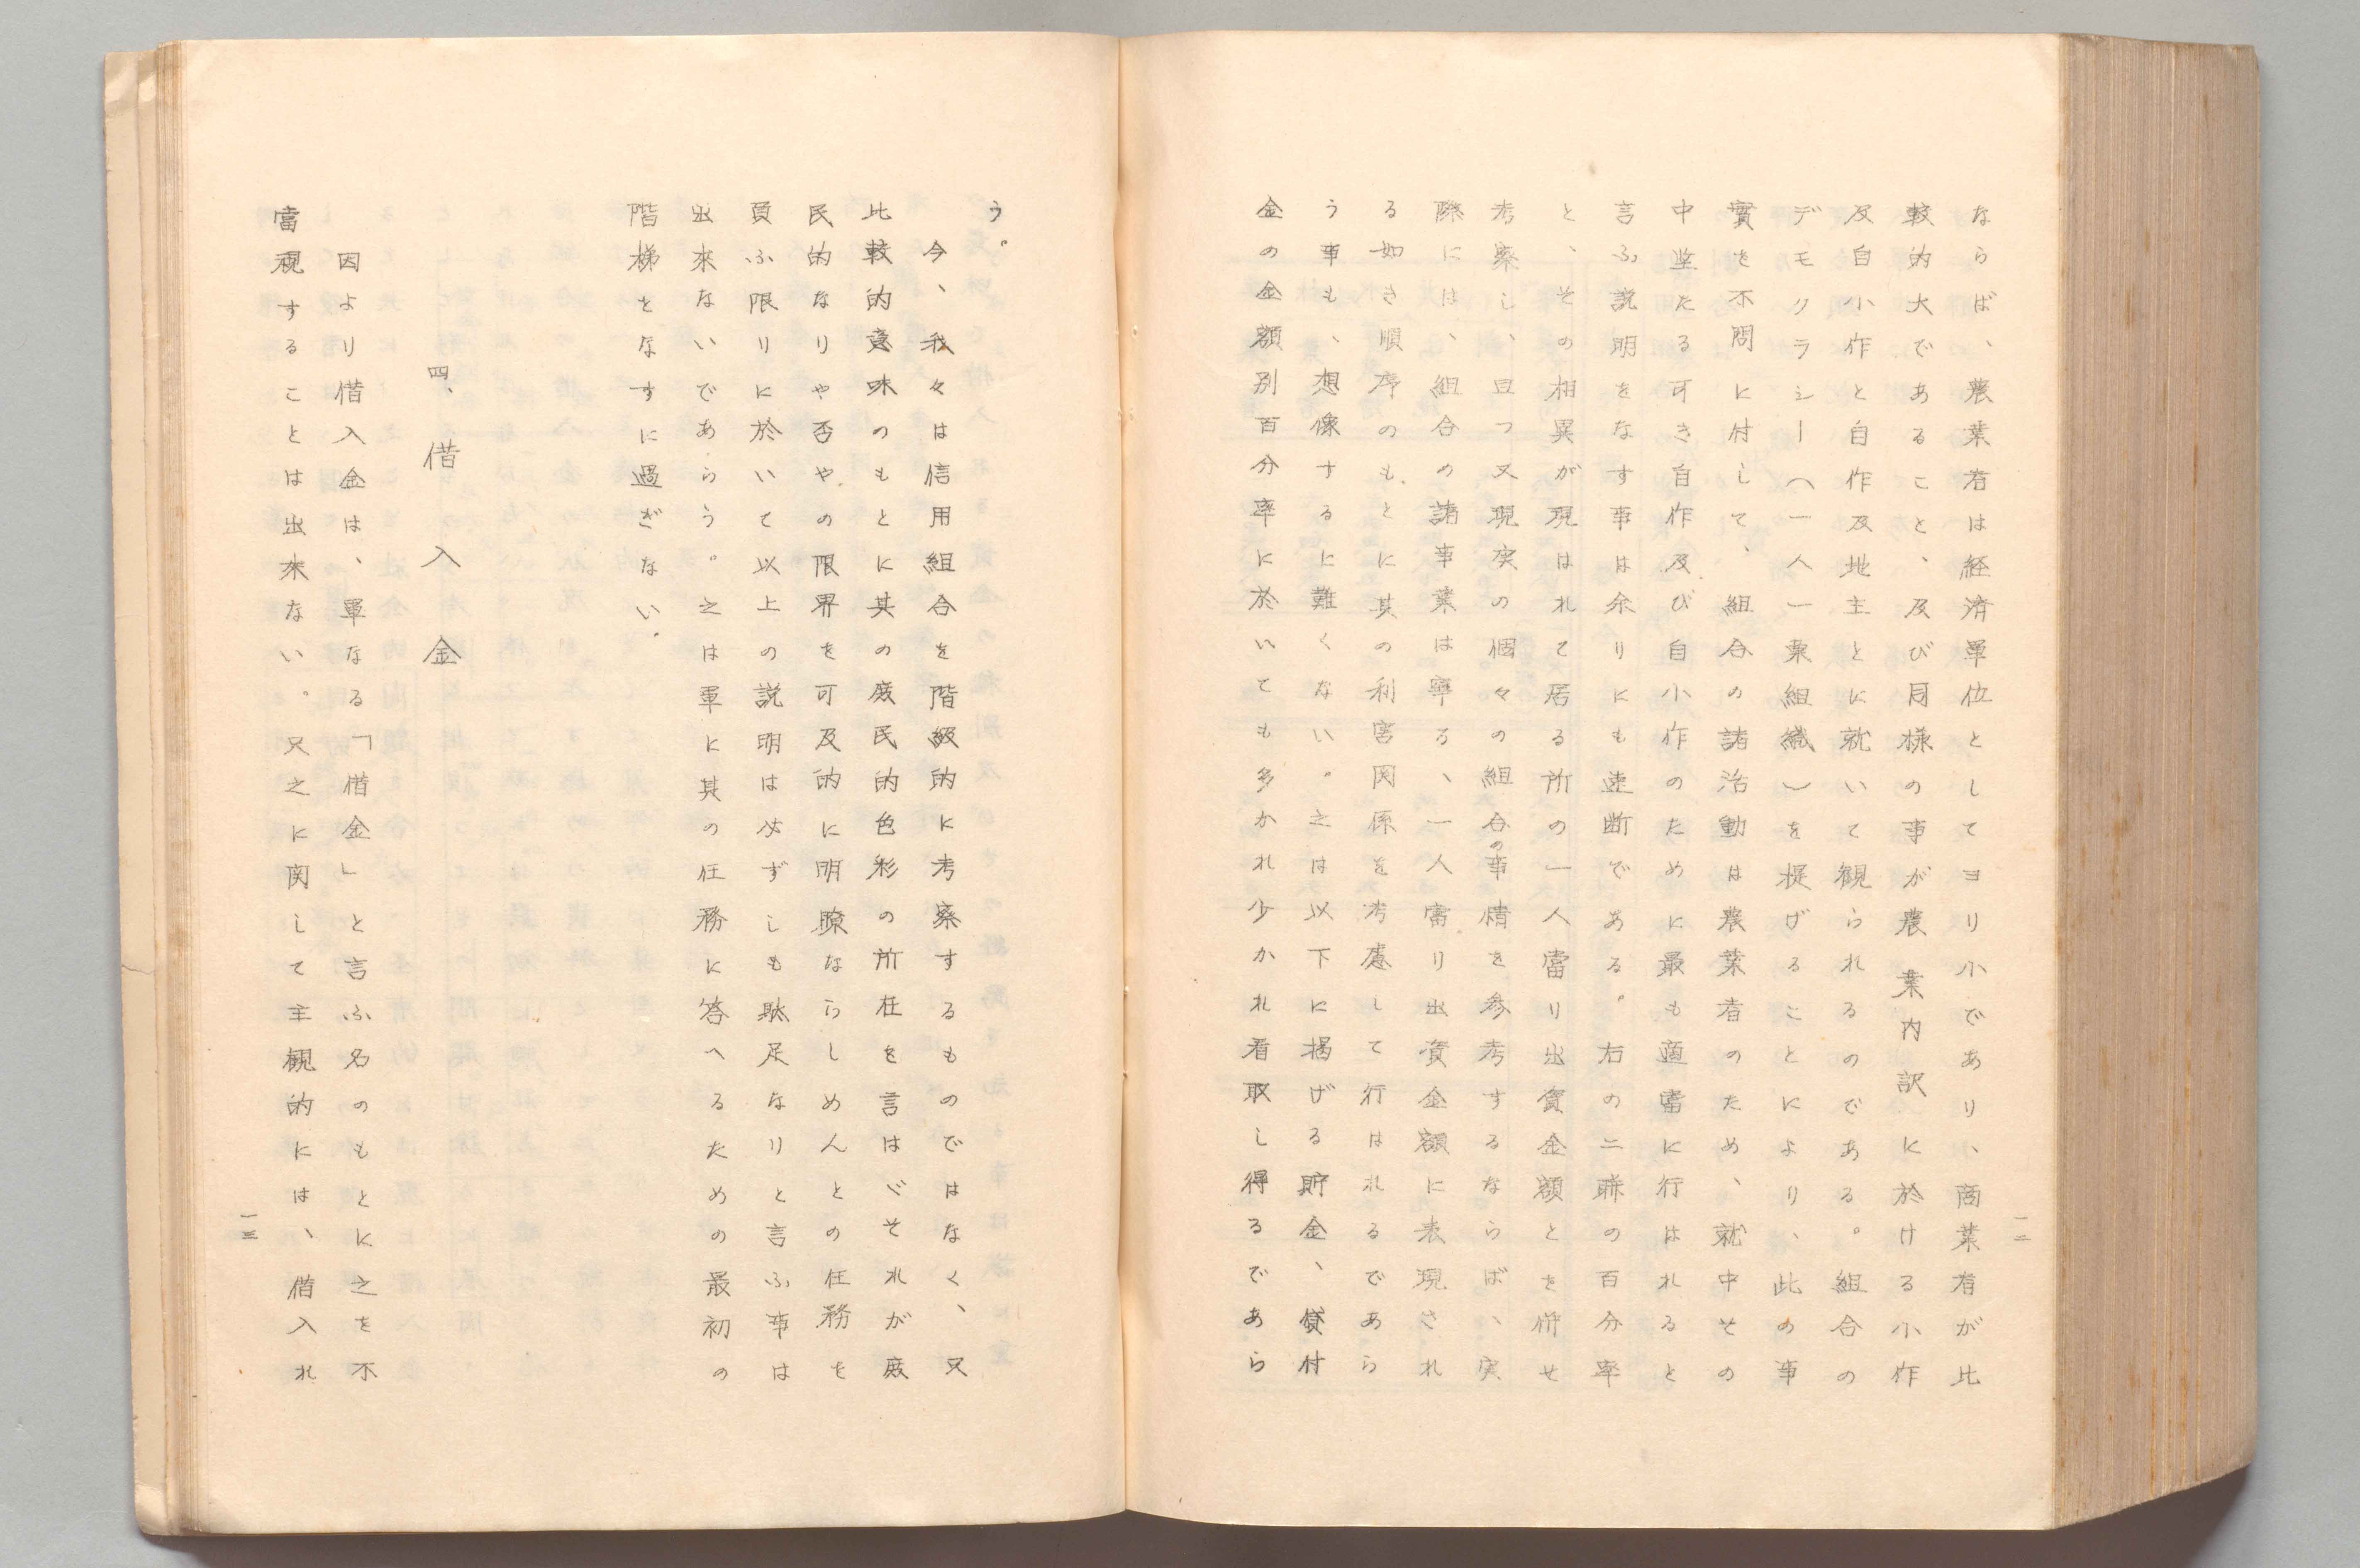 ならば、農業者は経済單位としてヨリ小であり、商業者が比
較的大であること、及び同様の事が農業内訳に於ける小作
及自小作と自作及地主とに就いて観られるのである。組合の
デモクラシー(一人一票組織)を提げることにより、此の事
實を不問に付して、組合の諸活動は農業者のため、就中その
中堅たる可き自作及び自小作のために最も適當に行はれると
言ふ説明をなす事は余りにも速断である。右の二聯の百分率
と、その相異が現はれて居る所の一人當り出資金額とを併せ
考察し、且つ又現実の個々の組合の事情を参考するならば、実
際には、組合の諸事業は寧ろ、一人當り出資金額に表現され
る如き順序のもとに其の利害関係を考慮して行はれるであら
う事も、想像するに難くない。之は以下に掲げる貯金、貸付
金の金額別百分率に於いても多かれ少かれ看取し得るであら
一二
う。
今、我々は信用組合を階級的に考察するものではなく、又
比較的意味のもとに其の庶民的色彩の所在を言はゞそれが庶
民的なりや否やの限界を可及的に明瞭ならしめんとの任務を
負ふ限りに於いて以上の説明は必ずしも駄足なりと言ふ事は
出來ないであらう。之は單に其の任務に答へるための最初の
階梯となすに過ぎない。
四、借入金
因より借入金は、單なる「借金」と言ふ名のもとに之を不
當視することは出来ない。又之に関して主観的には、借入れ
一三